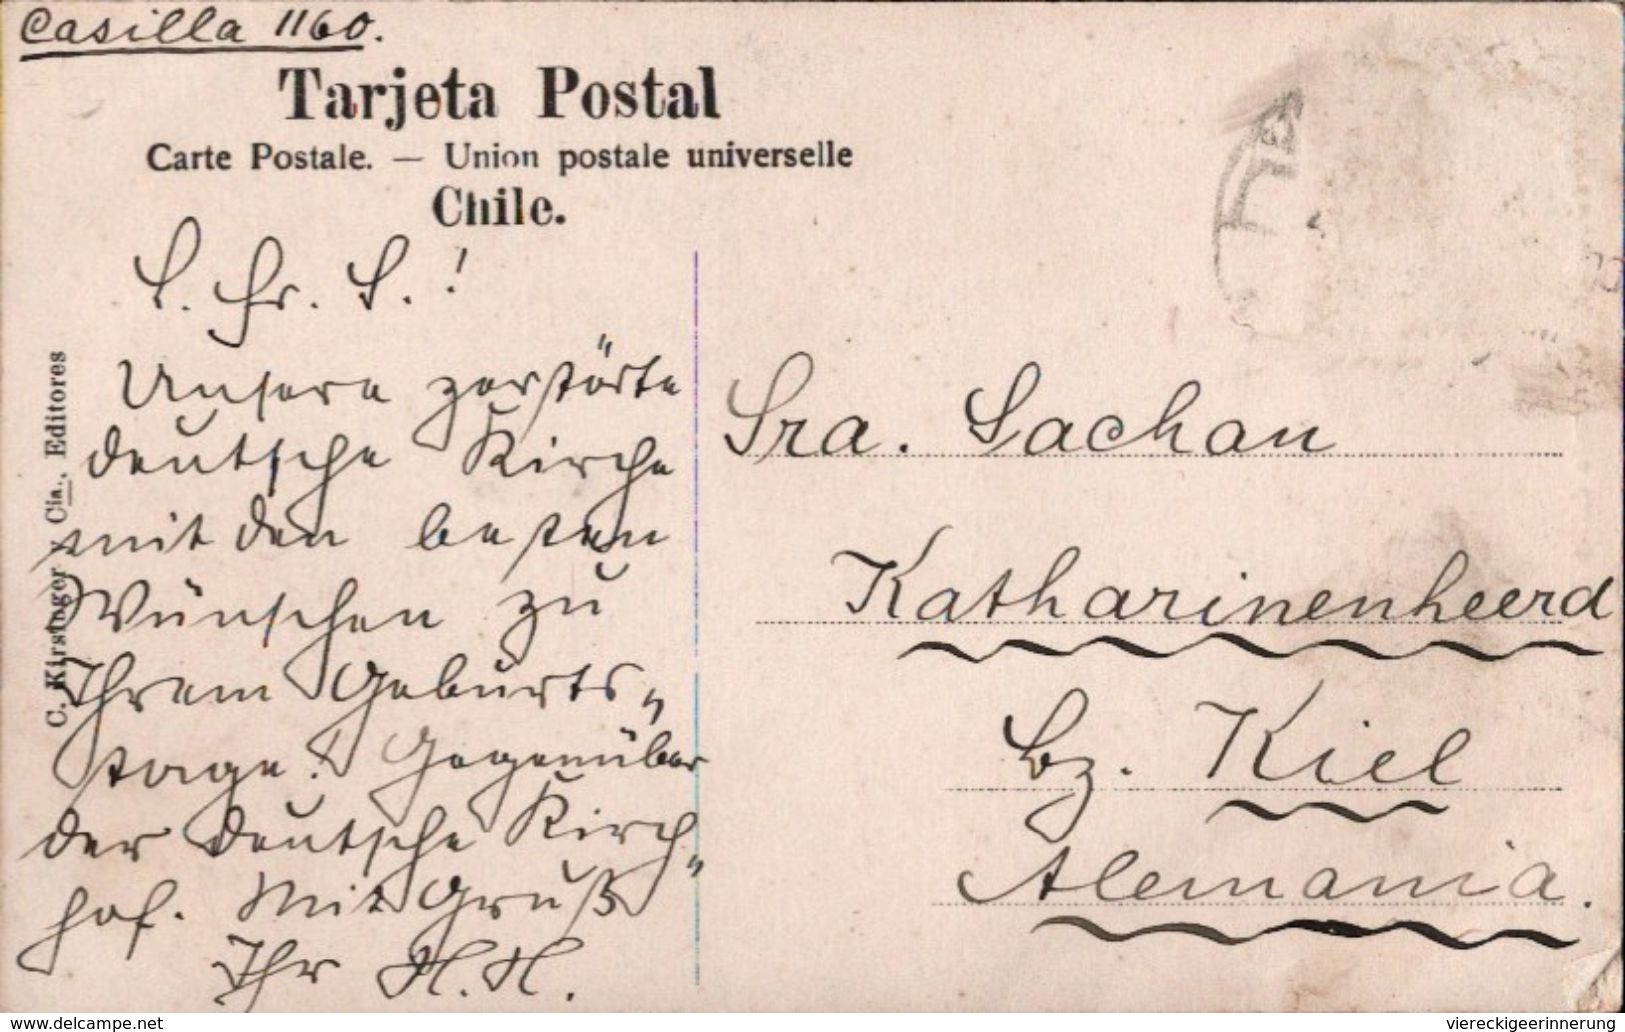 Casilla 1160.
Tarjeta Postal
Carte Postale. — Union postale universelle
Chile.
L. Fr. L.!
Unsere zerstörte
deutsche Kirche
mit den besten
Wünschen zu
Ihrem Geburts-
tage! Gegenüber
der deutsche Kirch-
hof. Mit Gruß
Ihr H. H.
C. Kirstinger y Cia., Editores
Sra. Lachau
Katharinenheerd
bz. Kiel
Alemania.
www.delcampe.net
viereckigeerinnerung